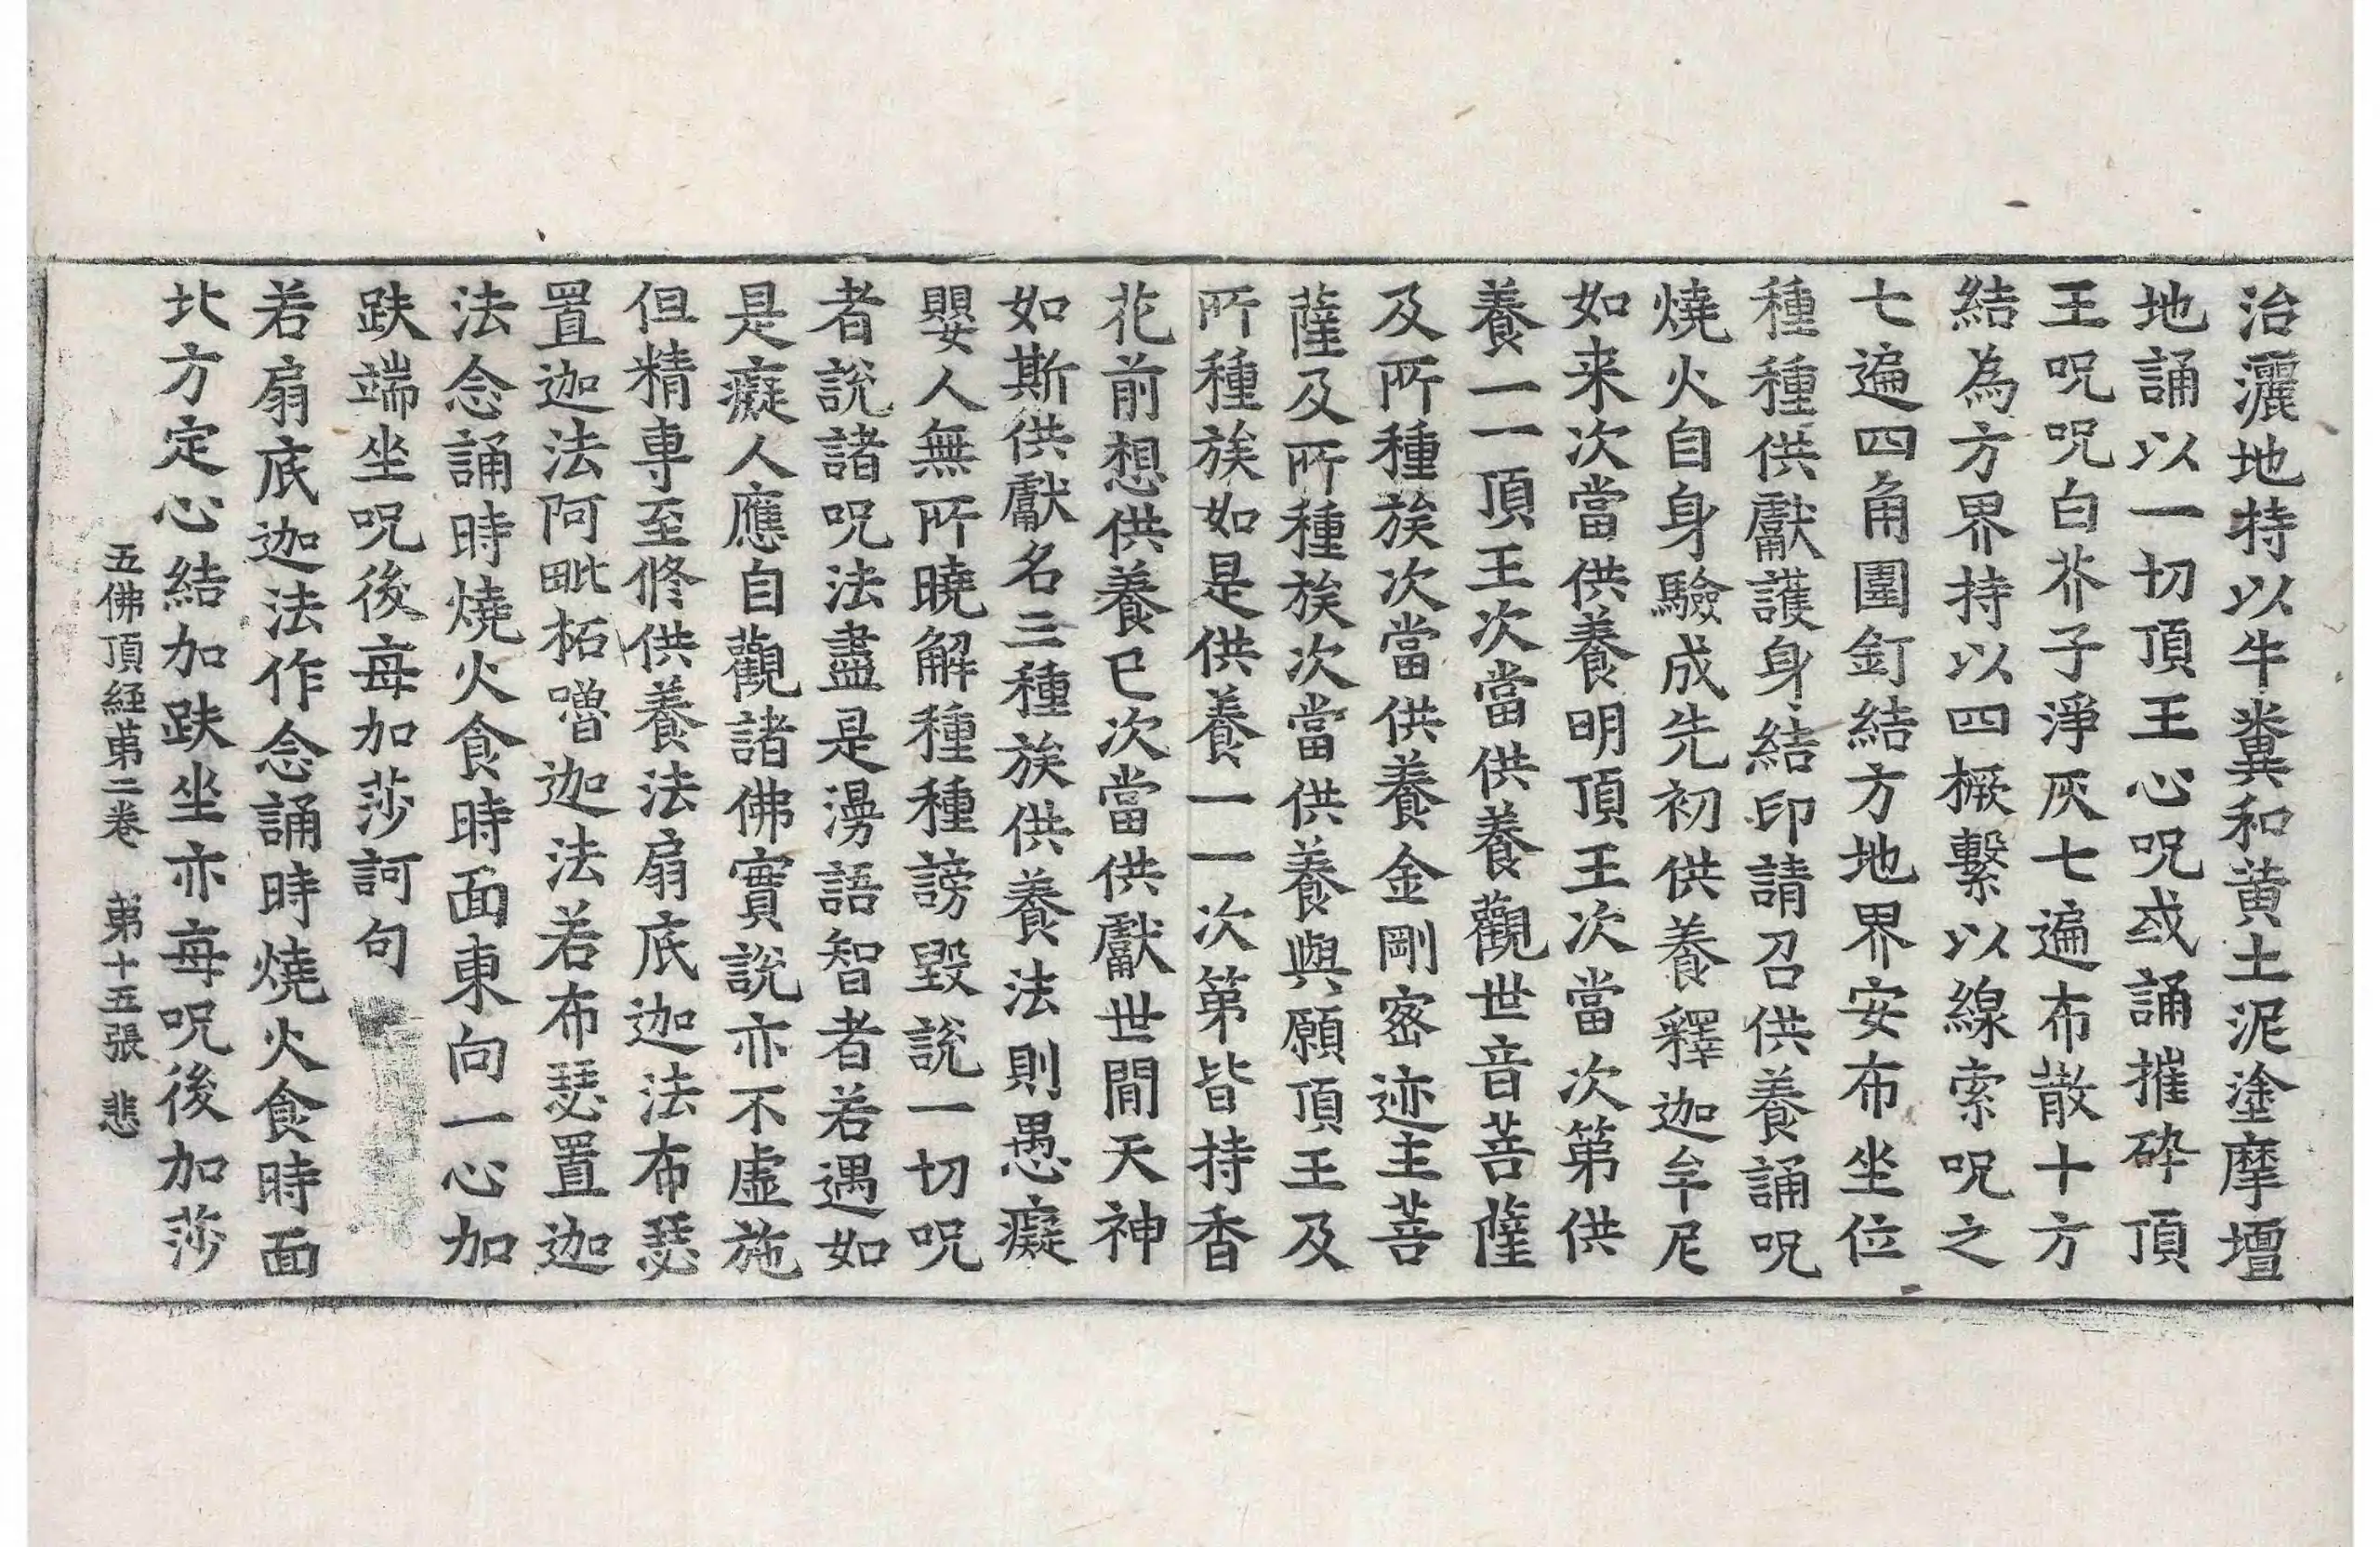 治灑地持以牛糞和黃土泥塗摩壇
地誦以一切頂王心呪或誦摧碎頂
王呪呪白芥子淨灰七遍布散十方
結為方界持以四橛繫以線索呪之
七遍四角圍釘結方地界安布坐位
種種供獻護身結印請召供養誦呪
燒火自身驗成先初供養釋迦牟尼
如来次當供養明頂王次當次第供
養一一頂王次當供養觀世音菩薩
及所種族次當供養金剛密迹主菩
薩及所種族次當供養與願頂王及
所種族如是供養一一次第皆持香
花前想供養已次當供獻世間天神
如斯供獻名三種族供養法則愚癡
嬰人無所曉解種種謗毀說一切呪
者說諸呪法盡是謾語智者若遇如
是癡人應自觀諸佛實說亦不虛施
但精専至修供養法扇底迦法布瑟
置迦法阿毗柘嚕迦法若布瑟置迦
法念誦時燒火食時面東向一心加
趺端坐呪後每加莎訶句
若扇底迦法作念誦時燒火食時面
北方定心結加趺坐亦每呪後加莎
五佛頂経苐二卷 苐十五張 悲